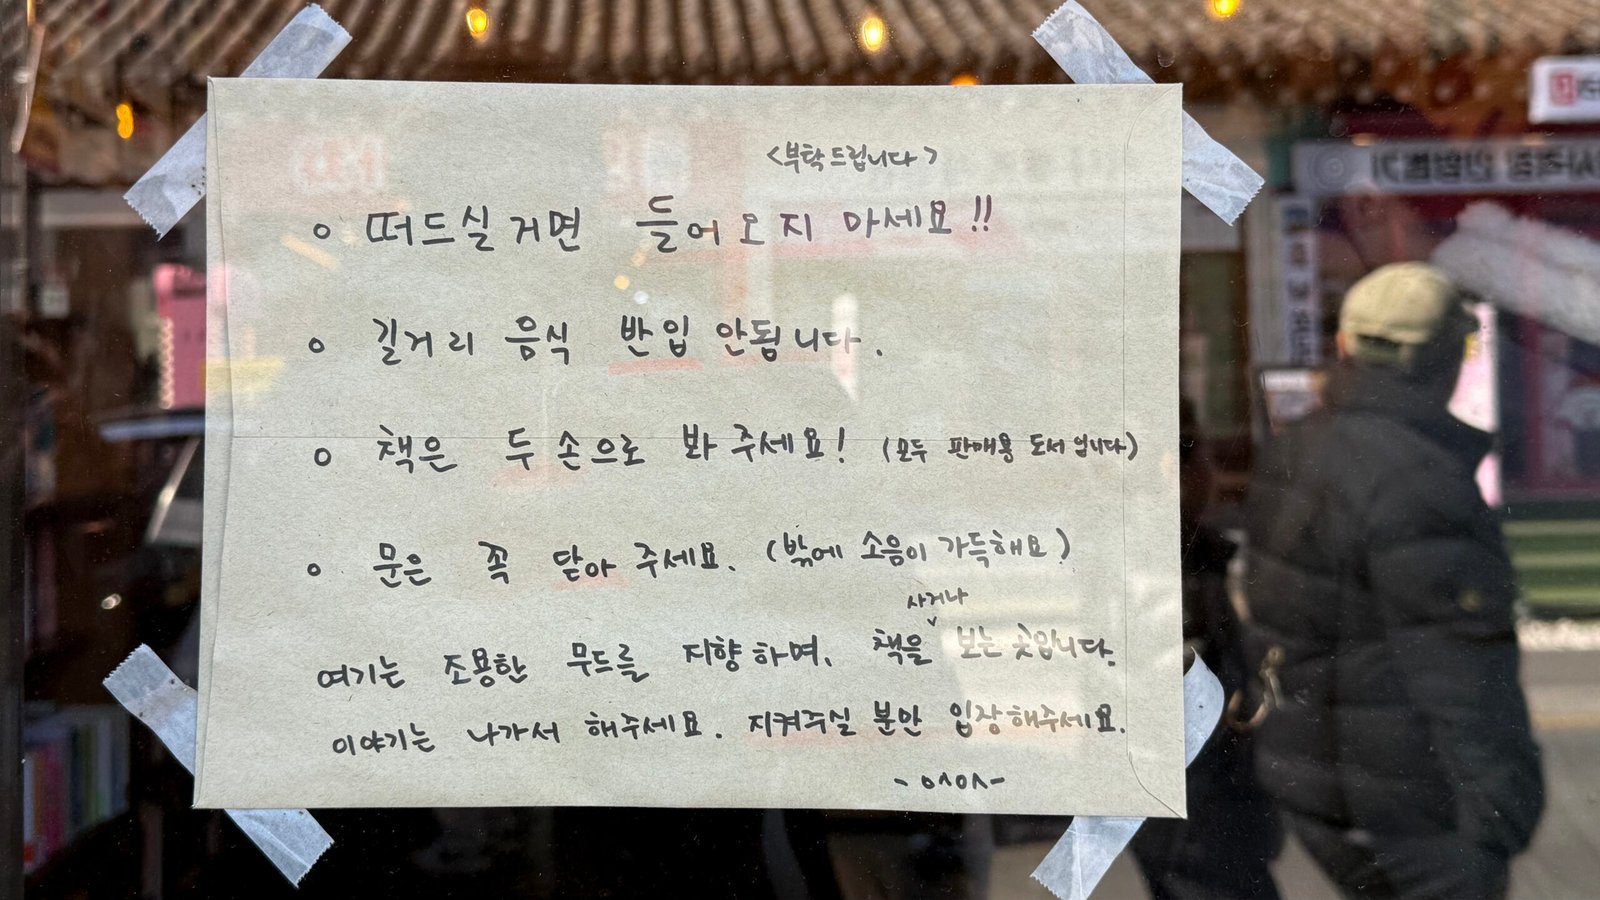 <부탁드립니다>
○ 떠드실거면 들어오지 마세요!!
○ 길거리 음식 반입 안됩니다.
○ 책은 두 손으로 봐 주세요! (모두 판매용 도서입니다)
○ 문은 꼭 닫아 주세요. (밖에 소음이 가득해요)
사거나
여기는 조용한 무드를 지향하며, 책을 ∨ 보는 곳입니다.
이야기는 나가서 해주세요. 지켜주실 분만 입장해주세요.
- ㅇㅅㅇㅅ-